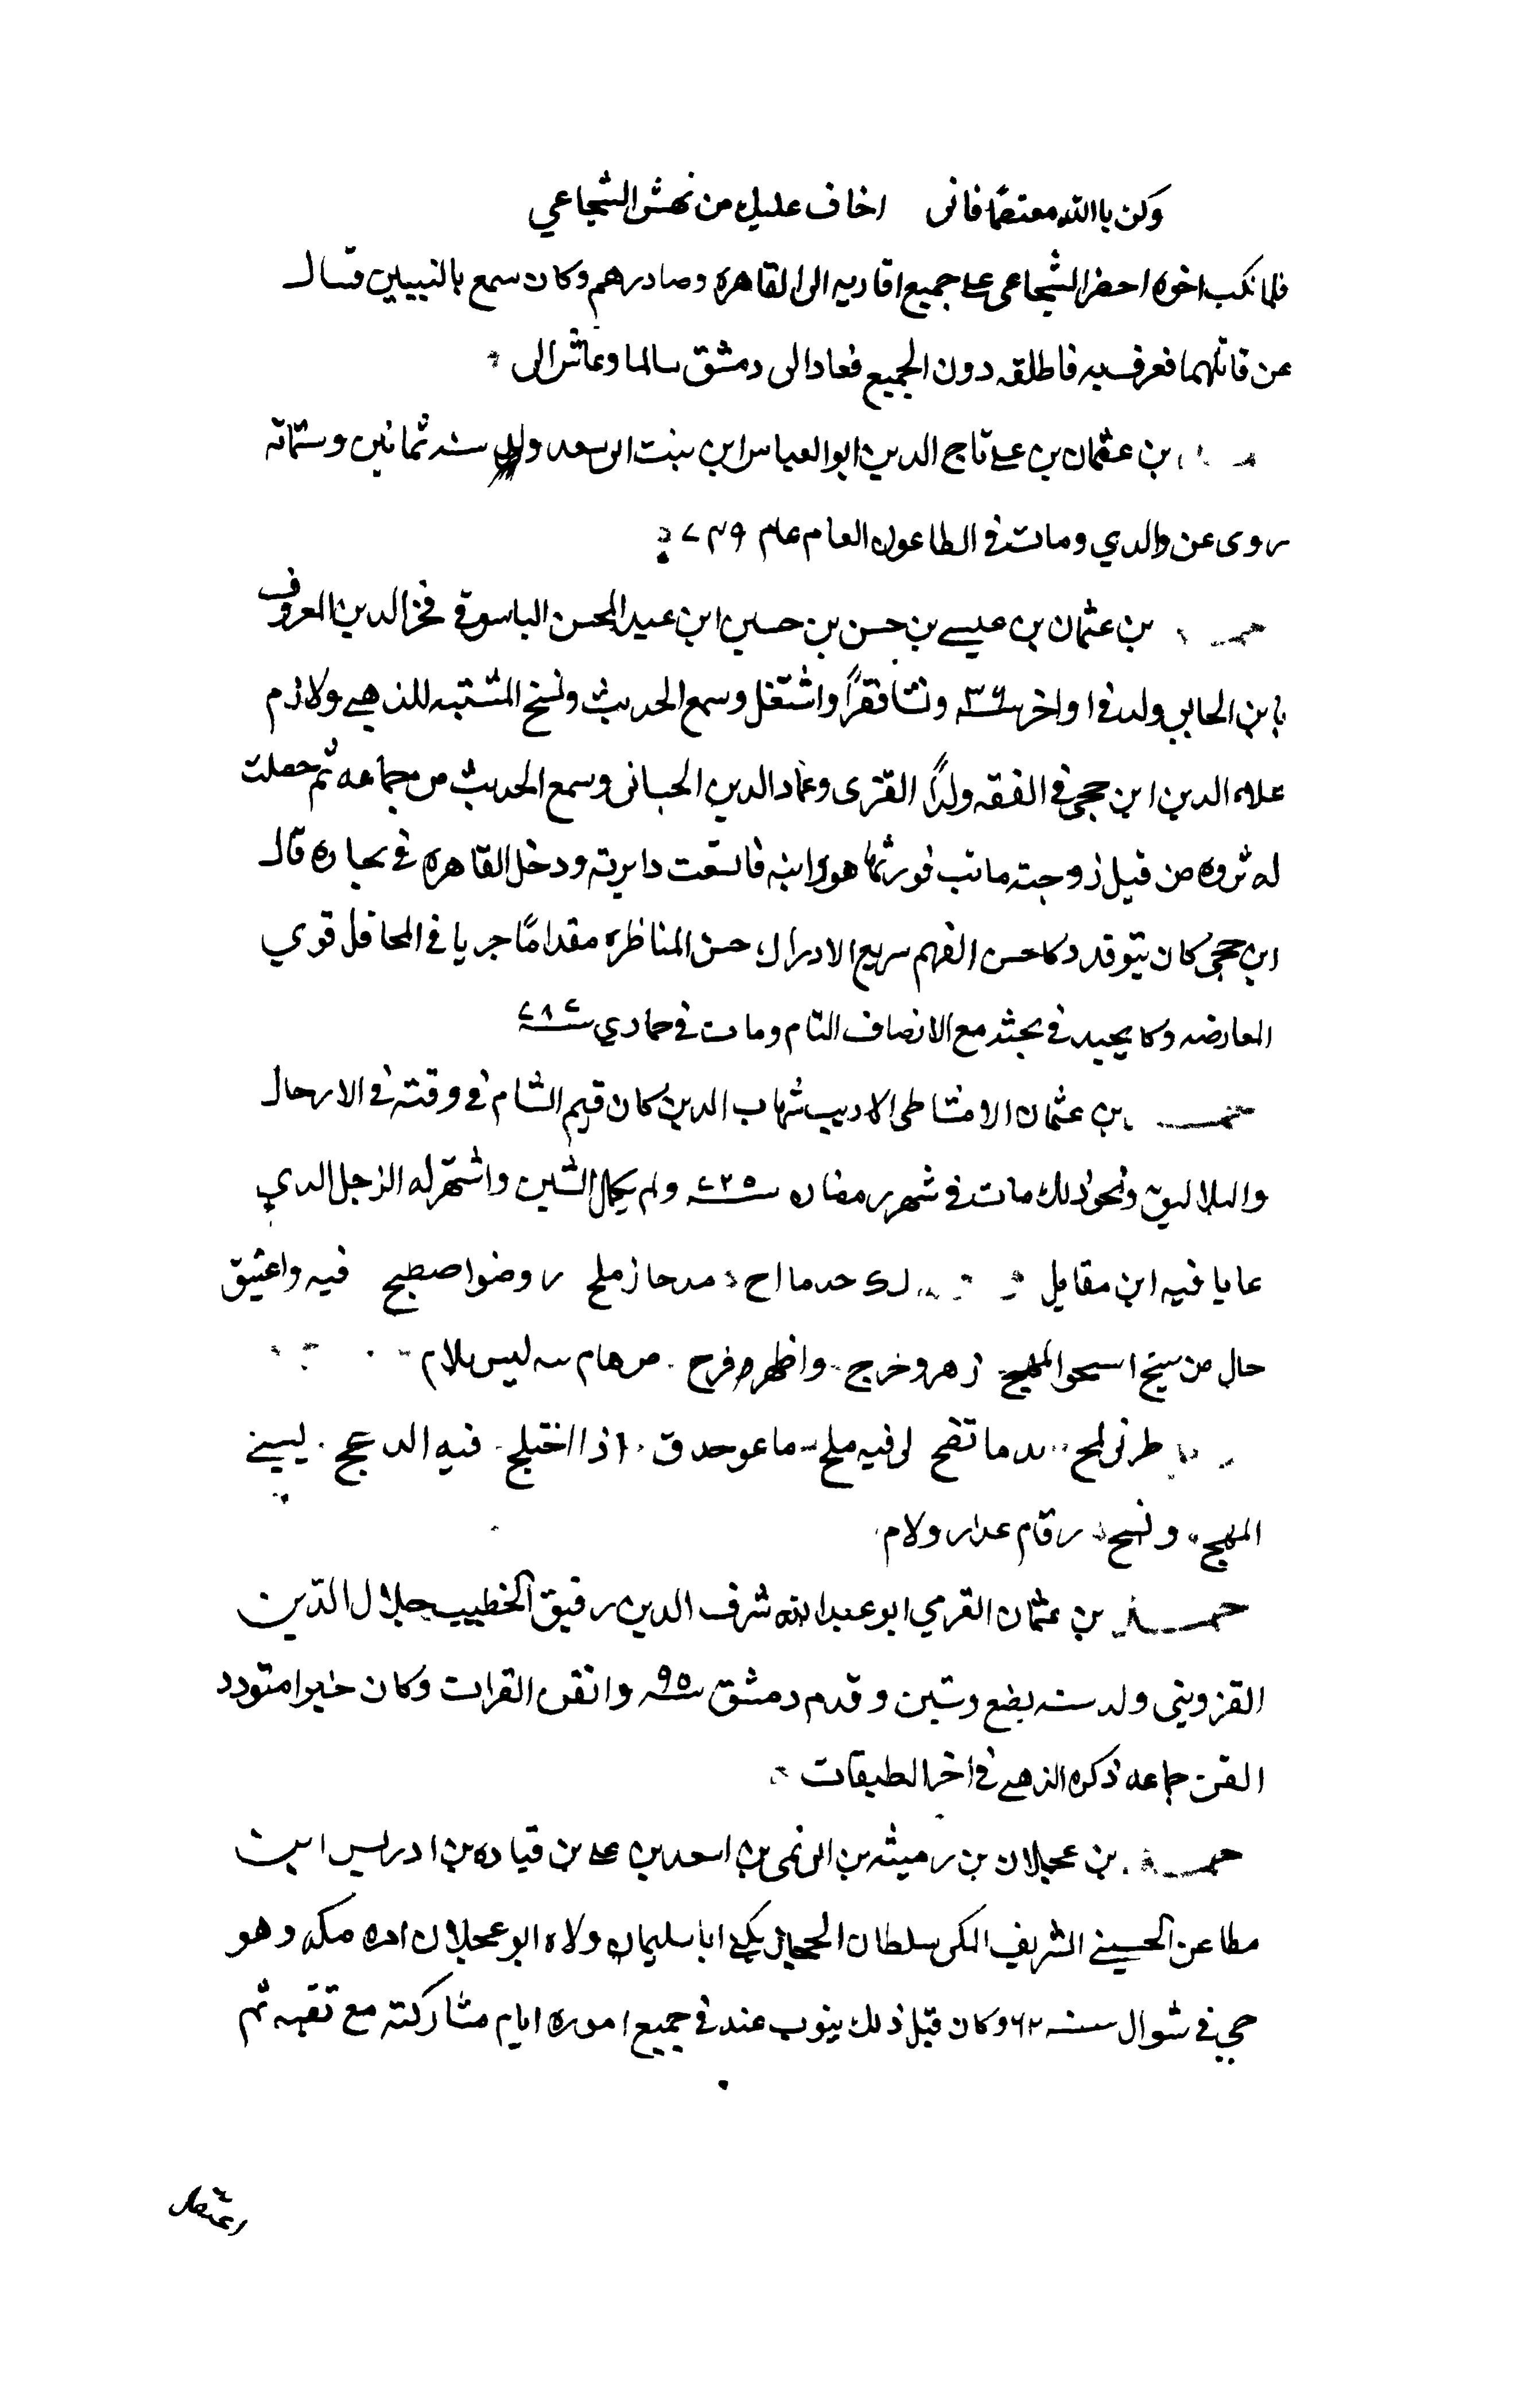 وكن باالله معتصما فانى اخاف عليك من نهش الشجاعي
فلما نكب اخوه احضر الشجاعى على جميع اقاربه الى القاهره وصادرهم وكان سمع بالبيتين فسال
عن قائلهما فعرف به فاطلقه دون الجميع فعاد الى دمشق سالما وعاش الى
بن عثمان بن على تاج الدين ابو العباس ابن بنت ابى سعد ولد سنه ثمانين وستمائة
روى عن والدي ومات فى الطاعون العام عام ٧٤٩
بن عثمان بن عيسى بن حسن بن حسين ابن عبد المحسن الياسوفى فخر الدين المعروف
بابن الجابي ولد فى اواخر سنه ٣٦ ونشا فقيرًا واشتغل وسمع الحديث ونسخ المشتبه للذهبي ولازم
علاء الدين ابن حجى فى الفقه ولدا الغزى وعماد الدين الحسبانى وسمع الحديث من جماعه ثم حصلت
له ثروه من قبل زوجته ماتت فورثها هو وابنه فاتسعت دايرته ودخل القاهره فى تجاره قال
ابن حجى كان يتوقد ذكا حسن الفهم سريع الادراك حسن المناظره مقدامًا جريا فى المحافل قوي
المعارضه وكا يجيد فى بحثه مع الانصاف التام ومات فى جمادي سنه ٧٨٧
بن عثمان الامشاطى الاديب شهاب الدين كان قيم الشام فى وقته فى الازجال
والبلاليق ونحو ذلك مات فى شهر رمضان سنه ٧٢٥ ولم يكمل الستين واشتهر له الزجل الدي
عايا فيه ابن مقاتل لك خد ما اح مدحاز ملح روضوا صطبح فيه واغتبق
حال من سبح زهر وخرج واظهر فرح من هام به ليس يلام
طرفى لمح ما تضح لى فيه ملح ما عو حدق اذا اختلج فيه الدعج ليسبي
المهج ونسج رقام عدار ولام
بن عثمان القرمي ابو عبد الله شرف الدين رفيق الخطيب جلال الدّين
القزوينى ولد سنه بضع وستين وقدم دمشق سنه ٩٥ واتقن القرات وكان خيرا متودد
القن جماعه ذكره الذهبى فى اخر الطبقات
بن عجلان بن رميثه بن ابى نمى بن اسعد بن على بن قتاده بن ادريس ابن
مطاعن الحسيني الشريف المكى سلطان الحجاز يكنى ابا سليمان ولاه ابو عجلان امره مكه وهو
حي فى شوال سنه ٦٢ وكان قبل ذلك ينوب عنه فى جميع اموره ايام مشاركته مع ثقبه ثم
اعتقل